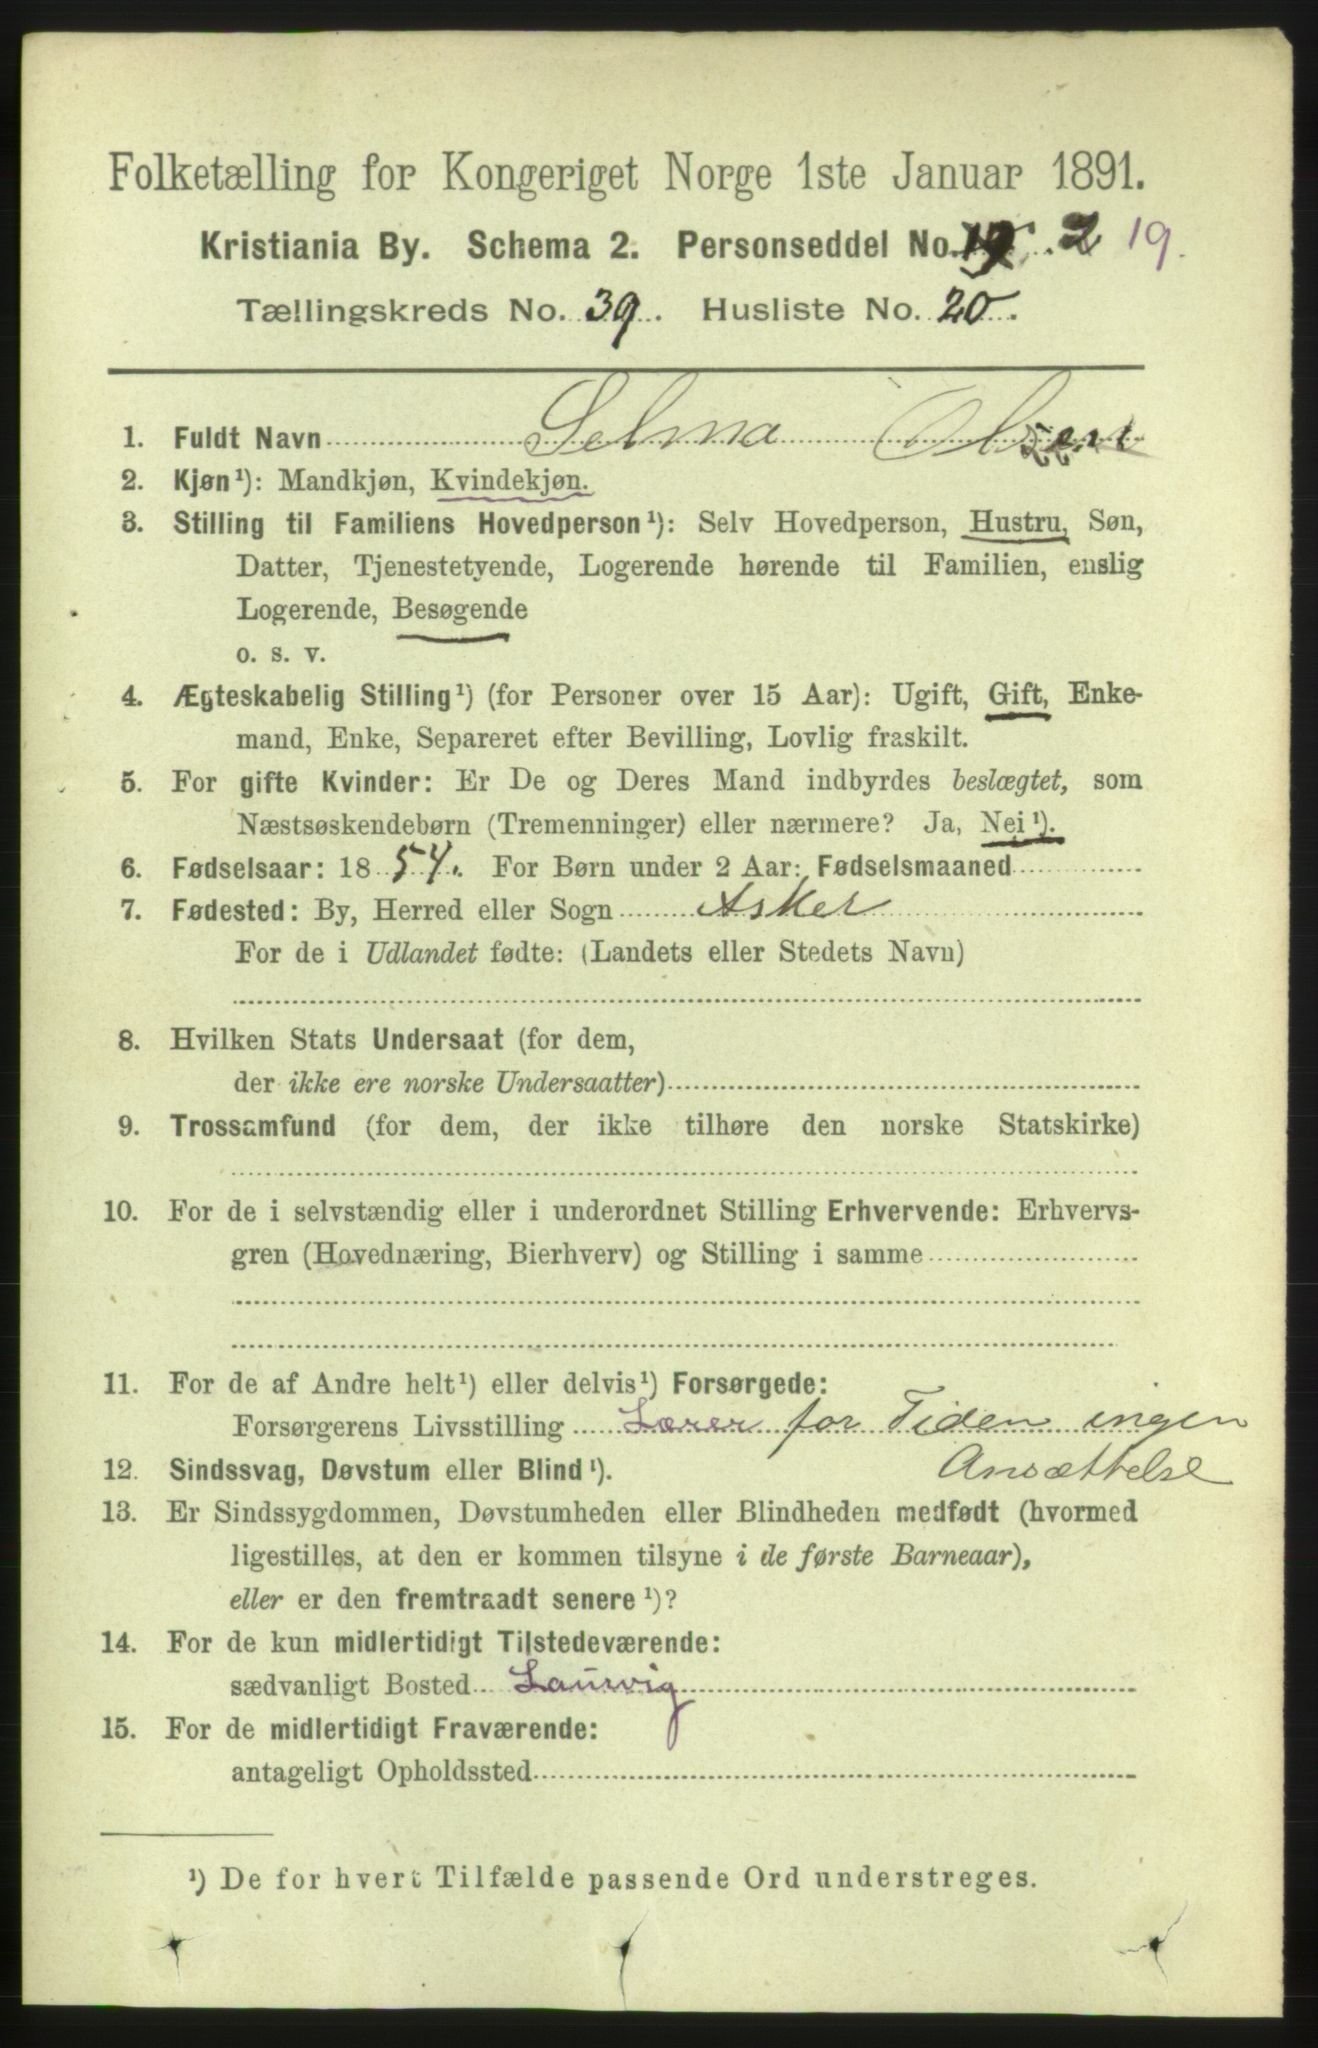 Folketælling for Kongeriget Norge 1ste Januar 1891.
Kristiania By. Schema 2. Personseddel No. 2 19.
Tællingskreds No. 39. Husliste No. 20.
1. Fuldt Navn Selma Olsen
2. Kjøn¹): Mandkjøn, Kvindekjøn.
3. Stilling til Familiens Hovedperson¹): Selv Hovedperson, Hustru, Søn,
Datter, Tjenestetyende, Logerende hørende til Familien, enslig
Logerende, Besøgende
o. s. v.
4. Ægteskabelig Stilling¹) (for Personer over 15 Aar): Ugift, Gift, Enke-
mand, Enke, Separeret efter Bevilling, Lovlig fraskilt.
5. For gifte Kvinder: Er De og Deres Mand indbyrdes beslægtet, som
Næstsøskendebørn (Tremenninger) eller nærmere? Ja, Nei¹).
6. Fødselsaar: 1854. For Børn under 2 Aar: Fødselsmaaned
7. Fødested: By, Herred eller Sogn Asker
For de i Udlandet fødte: (Landets eller Stedets Navn)
8. Hvilken Stats Undersaat (for dem,
der ikke ere norske Undersaatter)
9. Trossamfund (for dem, der ikke tilhøre den norske Statskirke)
10. For de i selvstændig eller i underordnet Stilling Erhvervende: Erhvervs-
gren (Hovednæring, Bierhverv) og Stilling i samme
11. For de af Andre helt¹) eller delvis¹) Forsørgede:
Forsørgerens Livsstilling Lærer for Tiden ingen
Ansættelse
12. Sindssvag, Døvstum eller Blind¹).
13. Er Sindssygdommen, Døvstumheden eller Blindheden medfødt (hvormed
ligestilles, at den er kommen tilsyne i de første Barneaar),
eller er den fremtraadt senere¹)?
14. For de kun midlertidigt Tilstedeværende:
sædvanligt Bosted Laurvig
15. For de midlertidigt Fraværende:
antageligt Opholdssted
¹) De for hvert Tilfælde passende Ord understreges.